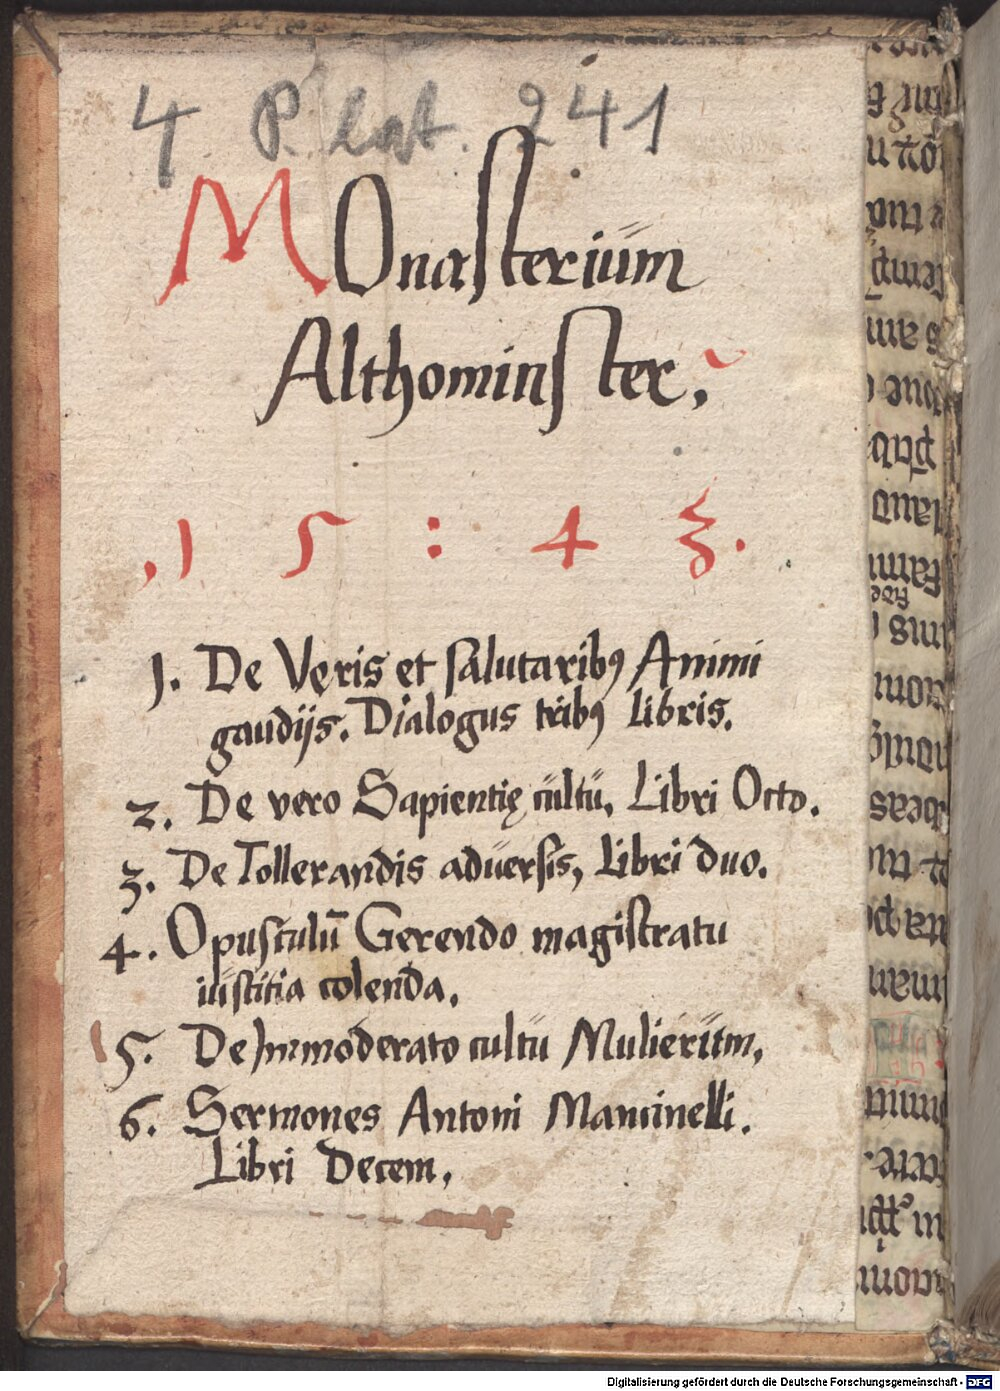 4 P. lat. 241
MOnasterium
Althominster.
.1 5 : 4 3.
1. De Veris et salutaribꝯ Animi
gaudijs. Dialogus tribꝯ libris.
2. De vero Sapientię cultu, Libri Octo.
3. De Tollerandis aduersis, Libri duo.
4. Opusculū Gerendo magistratu
iustitia colenda.
5. De Immoderato cultu Mulierum,
6. Sermones Antoni Mancinelli.
Libri Decem,
Digitalisierung gefördert durch die Deutsche Forschungsgemeinschaft - DFG